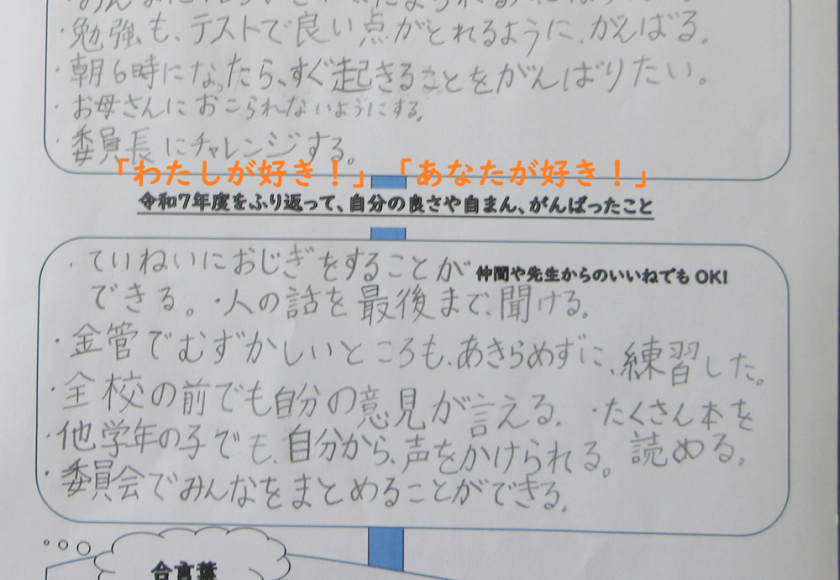 ・勉強も、テストで良い点がとれるように、がんばる。
・朝6時になったら、すぐ起きることをがんばりたい。
・お母さんにおこられないようにする。
・委員長にチャレンジする。
「わたしが好き！」「あなたが好き！」
令和7年度をふり返って、自分の良さや自まん、がんばったこと
仲間や先生からのいいねでもOK!
・ていねいにおじぎをすることが
できる。・人の話を最後まで、聞ける。
・金管でむずかしいところも、あきらめずに、練習した。
・全校の前でも自分の意見が言える。・たくさん本を
読める。
・他学年の子でも、自分から、声をかけられる。
・委員会でみんなをまとめることができる。
合言葉